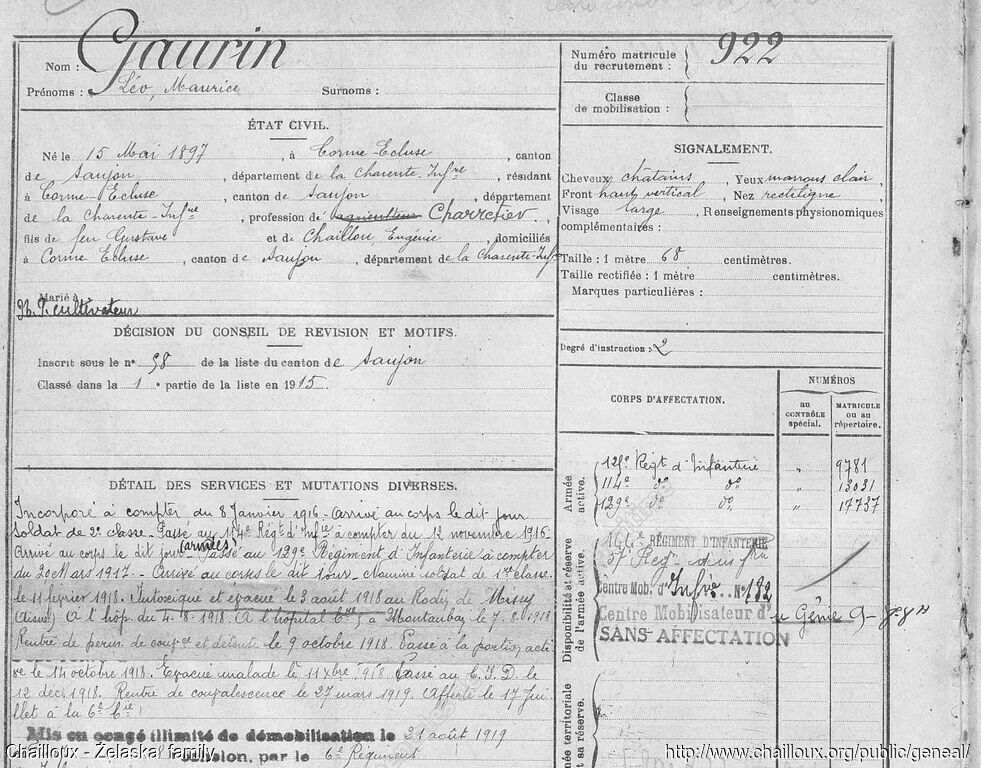 Nom : Gaurin
Prénoms : Léo, Maurice Surnoms :
ÉTAT CIVIL.
Né le 15 Mai 1897, à Corme-Ecluse, canton
de Saujon, département de la Charente-Infre, résidant
à Corme-Ecluse, canton de Saujon, département
de la Charente-Infre, profession d'agriculteur Charretier,
fils de feu Gustave et de Chaillou, Eugénie, domiciliés
à Corme Ecluse, canton de Saujon, département de la Charente-Infre
Marié à
N. P. cultivateur
DÉCISION DU CONSEIL DE REVISION ET MOTIFS.
Inscrit sous le n° 98 de la liste du canton de Saujon
Classé dans la 1e partie de la liste en 1915
DÉTAIL DES SERVICES ET MUTATIONS DIVERSES.
Incorporé à compter du 8 Janvier 1916 - Arrivé au corps le dit jour
Soldat de 2e classe - Passé au 114e Régt d'Infie à compter du 12 novembre 1916 -
Arrivé au corps le dit jour (armées) - Passé au 129e Régiment d'Infanterie à compter
du 20 Mars 1917. - Arrivé au corps le dit jour - Nommé soldat de 1re classe
le 11 février 1918. Intoxiqué et évacué le 3 août 1918 au de Missy
(Aisne) A l'hôp. du 4.8.1918. A l'hôpital à Montauban le 7.8.1918
Rentré de perm. de et détente le 9 octobre 1918. Passé à la portion acti
ve le 14 octobre 1918. Evacué malade le 11 Xbre 1918. Passé au C.I.D. le
12 décb 1918. Rentré de convalescence le 27 mars 1919. Affecté le 17 Jui
llet à la 6e Cie
Mis en congé illimité de démobilisation le 21 août 1919
par le 6e Régiment
Numéro matricule du recrutement : 922
Classe de mobilisation :
SIGNALEMENT.
Cheveux châtains, Yeux marrons clair,
Front haut vertical, Nez rectiligne,
Visage large, Renseignements physionomiques
complémentaires :
Taille : 1 mètre 68 centimètres.
Taille rectifiée : 1 mètre centimètres.
Marques particulières :
Degré d'instruction : 2
CORPS D'AFFECTATION.
NUMÉROS
au CONTRÔLE spécial.
MATRICULE ou au répertoire.
Armée active.
Régt d'Infanterie " 9781
114e do do " 13031
129e do do " 17737
Disponibilité et réserve de l'armée active.
RÉGIMENT D'INFANTERIE
57e
Centre Mob. d'Infie N° 182
Centre Mobilisateur du Génie
SANS-AFFECTATION
Armée territoriale et sa réserve.
Chailloux - Zelaska family
http://www.chailloux.org/public/geneal/